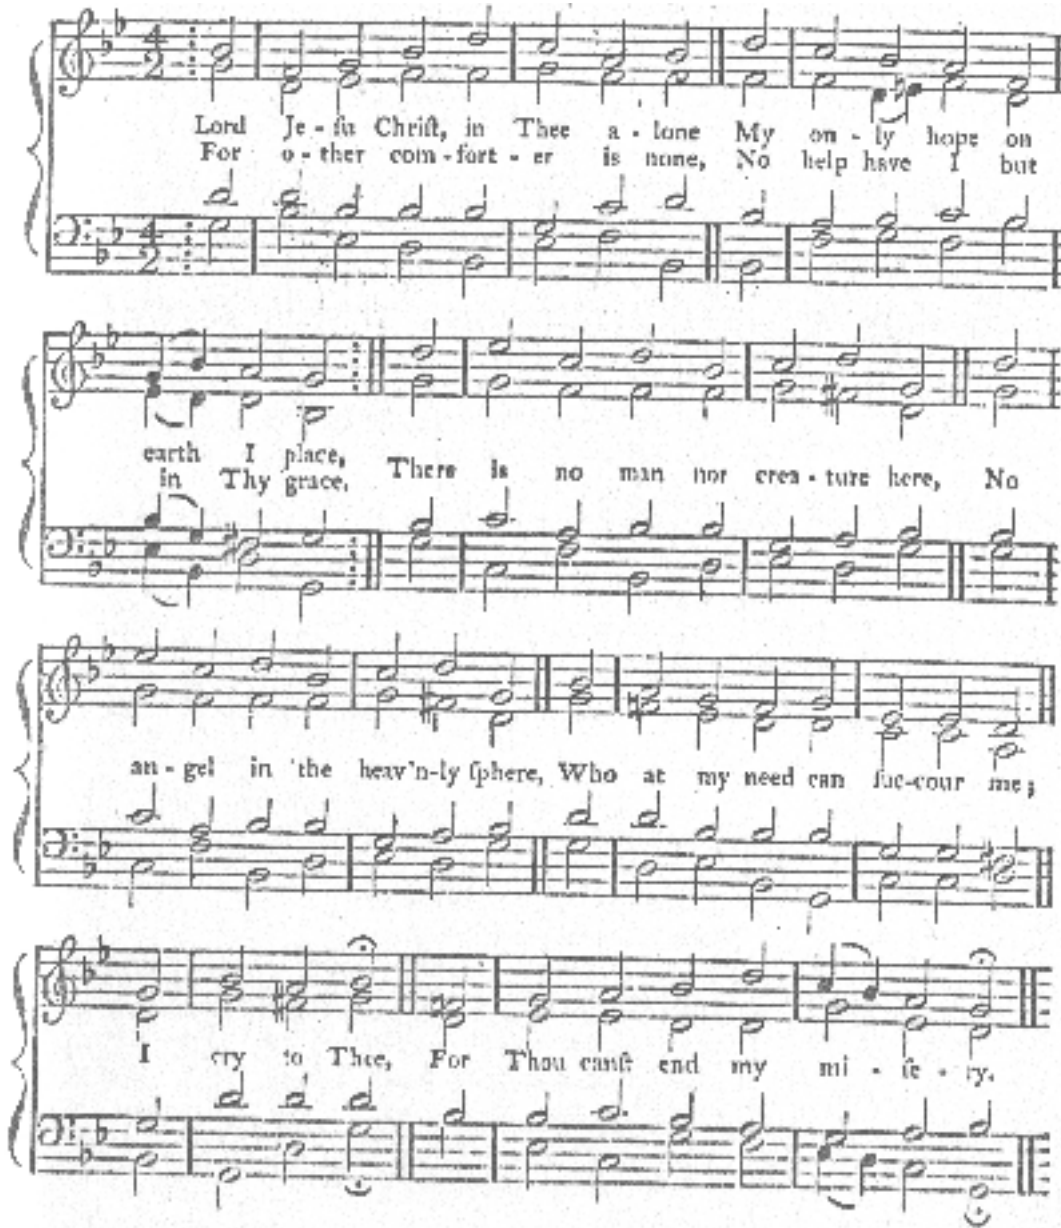 4 2
Lord Je - ſu Chriſt, in Thee a - lone My on - ly hope on
For o - ther com - fort - er is none, No help have I but
4 2
earth I place,
in Thy grace. There is no man nor crea - ture here, No
an - gel in the heav'n-ly ſphere, Who at my need can ſuc-cour me;
I cry to Thee, For Thou canſt end my mi - ſe - ry.